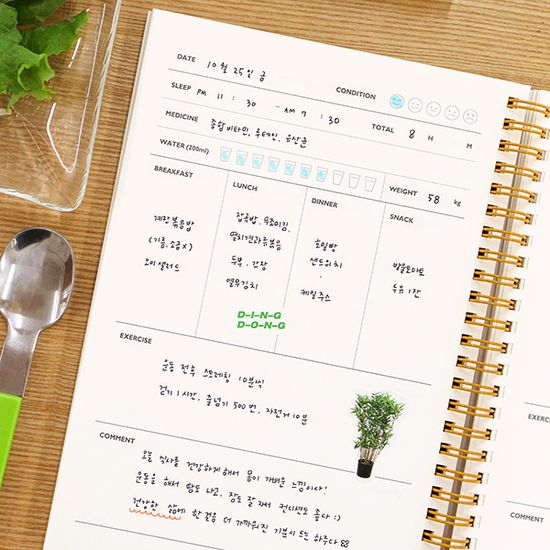 DATE 10월 25일 금
CONDITION
SLEEP PM 11 : 30 - AM 7 : 30 TOTAL 8 H M
MEDICINE 종합비타민, 루테인, 유산균
WATER (200ml) WEIGHT 58 kg
BREAKFAST
계란볶음밥
(기름, 소금 X)
오이샐러드
LUNCH
잡곡밥, 무조미김,
멸치견과류볶음
두부, 간장
열무김치
DINNER
호밀빵
샌드위치
,
케일주스
SNACK
방울토마토
두유 1잔
D-I-N-G
D-O-N-G
EXERCISE
운동 전후 스트레칭 10분씩
걷기 1시간, 줄넘기 500번, 자전거 10분
COMMENT
오늘 식사를 건강하게 해서 몸이 가벼운 느낌이다!
운동을 해서 땀도 나고, 잠도 잘 자서 컨디션도 좋다 :)
건강한 삶에 한 걸음 더 가까워진 기분이 드는 하루다
EXERCISE
COMMENT